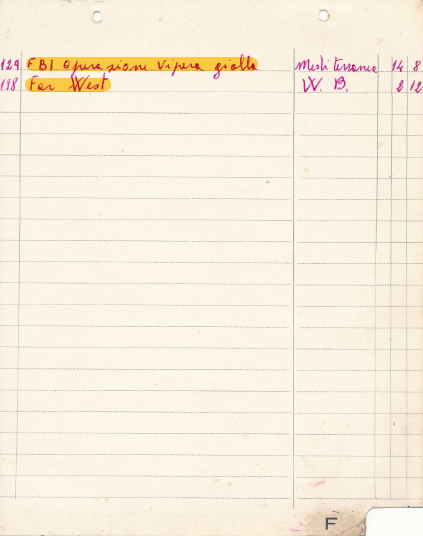 129 FBI Operazione Vipera gialla Mediterranea 14 8
198 Far West W. B. 2 12
F